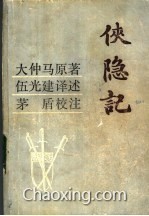 俠隐記
大仲马原著
伍光建译述
茅盾校注
Chaoxing.com